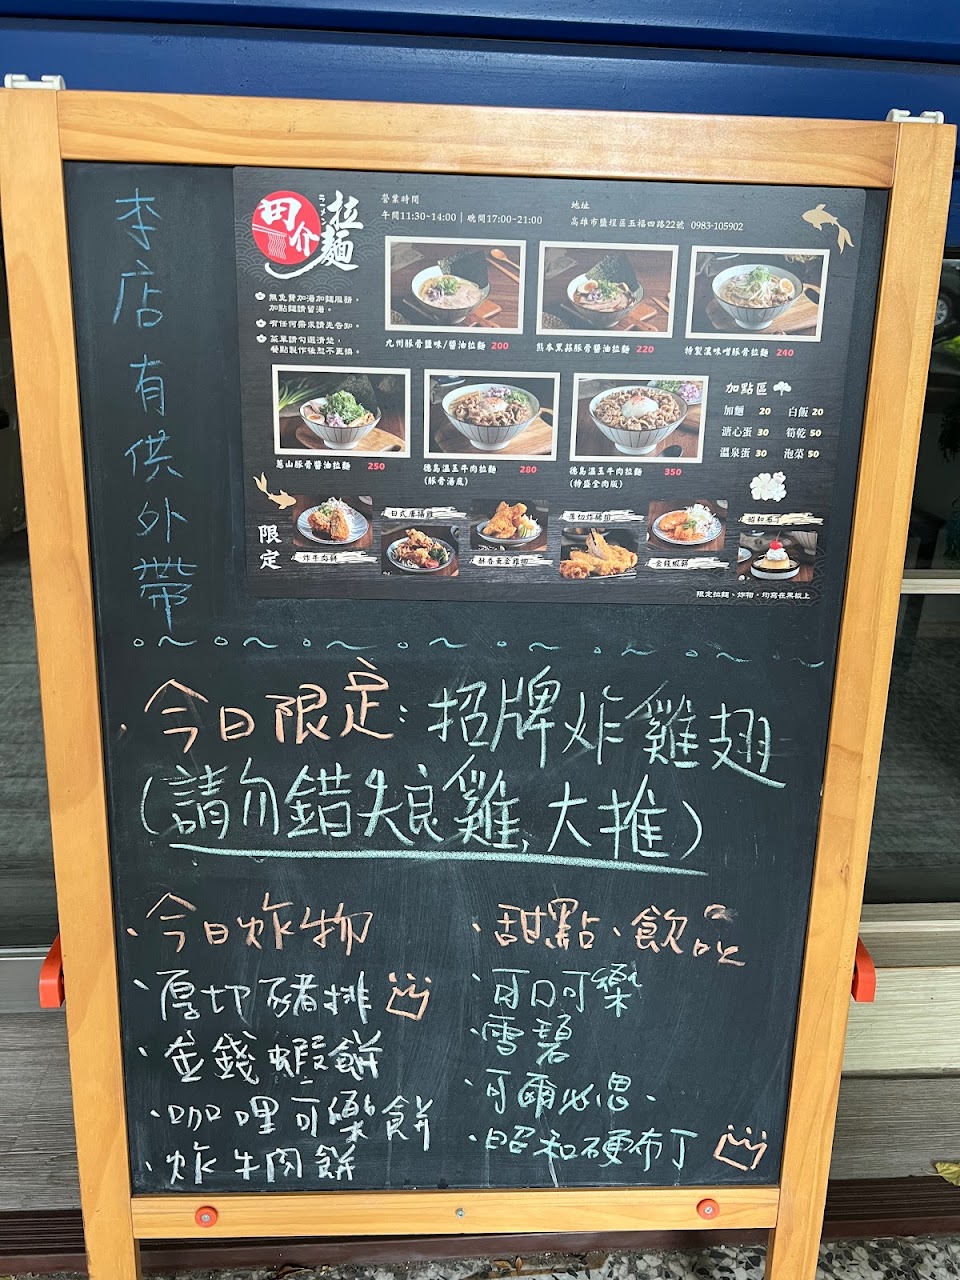 李店有供外帶
田介
拉麵
ラーメン
營業時間
午間11:30~14:00 | 晚間17:00~21:00
地址
高雄市鹽埕區五福四路22號 0983-105902
無免費加湯加麵服務，
加點麵請留湯。
有任何需求請先告知。
菜單請勾選清楚，
餐點製作後恕不更換。
九州豚骨鹽味/醬油拉麵 200
熊本黑蒜豚骨醬油拉麵 220
特製濃味噌豚骨拉麵 240
蔥山豚骨醬油拉麵 250
德島溫玉牛肉拉麵 280
(豚骨湯底)
德島溫玉牛肉拉麵 350
(特盛全肉版)
加點區
加麵 20 白飯 20
溏心蛋 30 筍乾 50
溫泉蛋 30 泡菜 50
限定
炸牛肉餅
日式唐揚雞
酥香黃金雞柳
厚切炸豬排
金錢蝦餅
昭和布丁
限定拉麵、炸物，均寫在黑板上
今日限定：招牌炸雞翅
(請勿錯失良雞，大推)
·今日炸物
·厚切豬排
·金錢蝦餅
·咖哩可樂餅
·炸牛肉餅
·甜點、飲品
·可口可樂
·雪碧
·可爾必思、
·昭和硬布丁